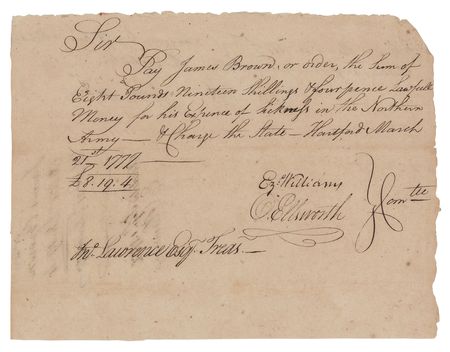 Sir
Pay James Brown, or order, the Sum of
Eight Pounds Nineteen Shillings & four pence Lawfull
Money for his Expence of Sickness in the Northern
Army — & Charge the State — Hartford March
21st 1777
£8.19.4
Ezr. Williams
O. Ellsworth
Comtee
Jno. Lawrence Esqr. Treas. —